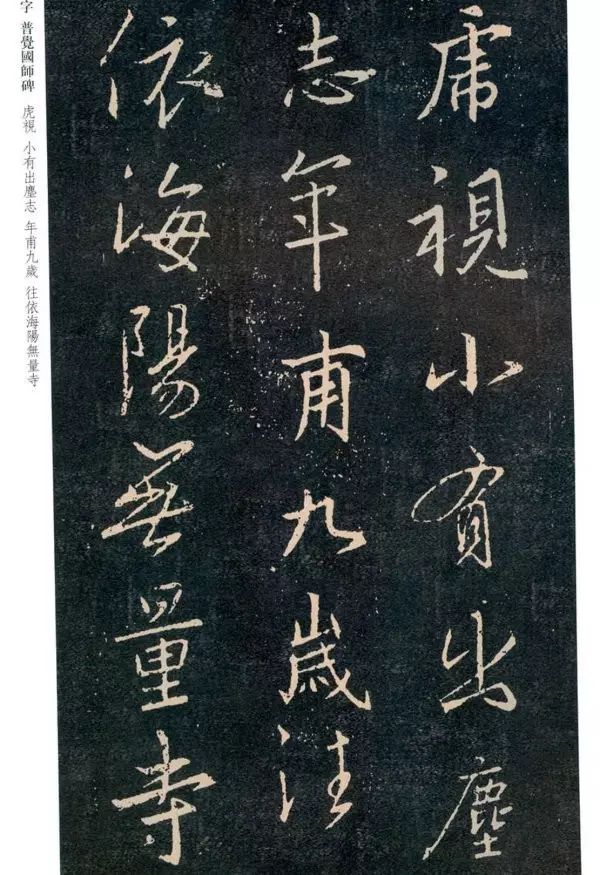 虎視小有出塵
志年甫九歲往
依海陽無量寺
字 普覺國師碑 虎視 小有出塵志 年甫九歲 往依海陽無量寺